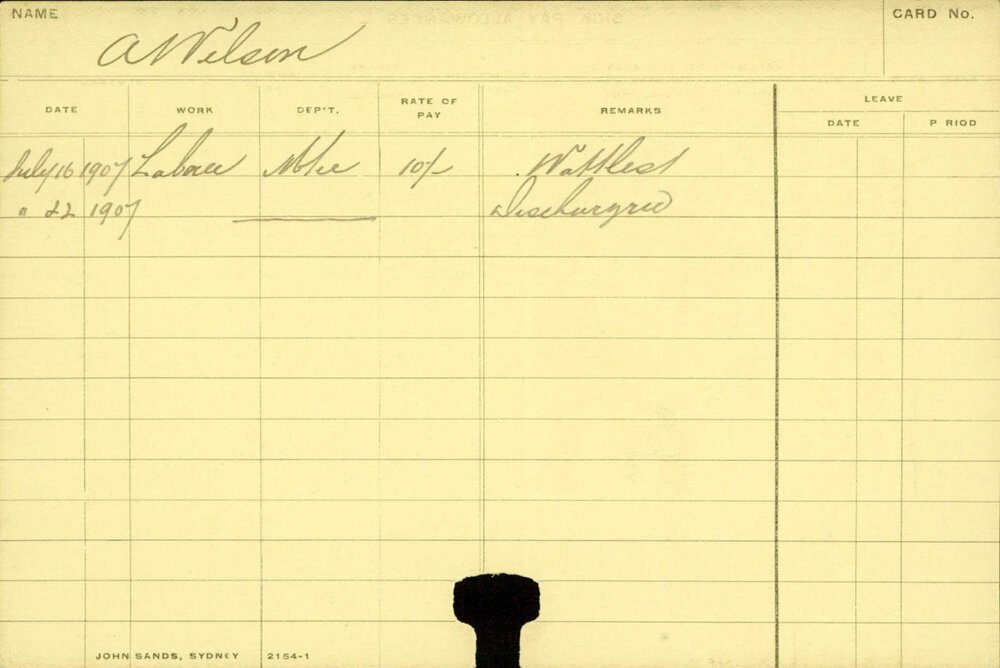 NAME
CARD No.
A Wilson
DATE WORK DEP'T. RATE OF PAY REMARKS LEAVE
DATE P RIOD
July 16 1907 Labour 10/-
" 22 1907 Discharged
JOHN SANDS, SYDNEY 2154-1